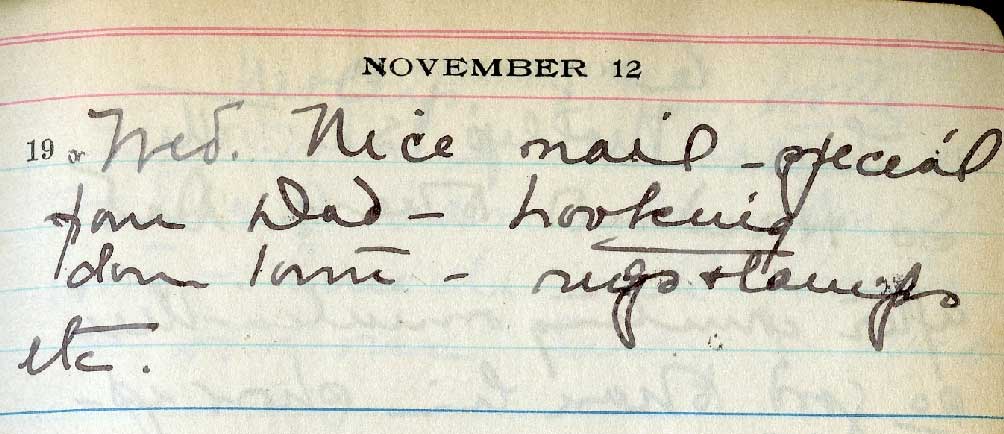 NOVEMBER 12
19 Wed. Nice mail - special
from Dad - Looking
down town - rugs & lamps
etc.